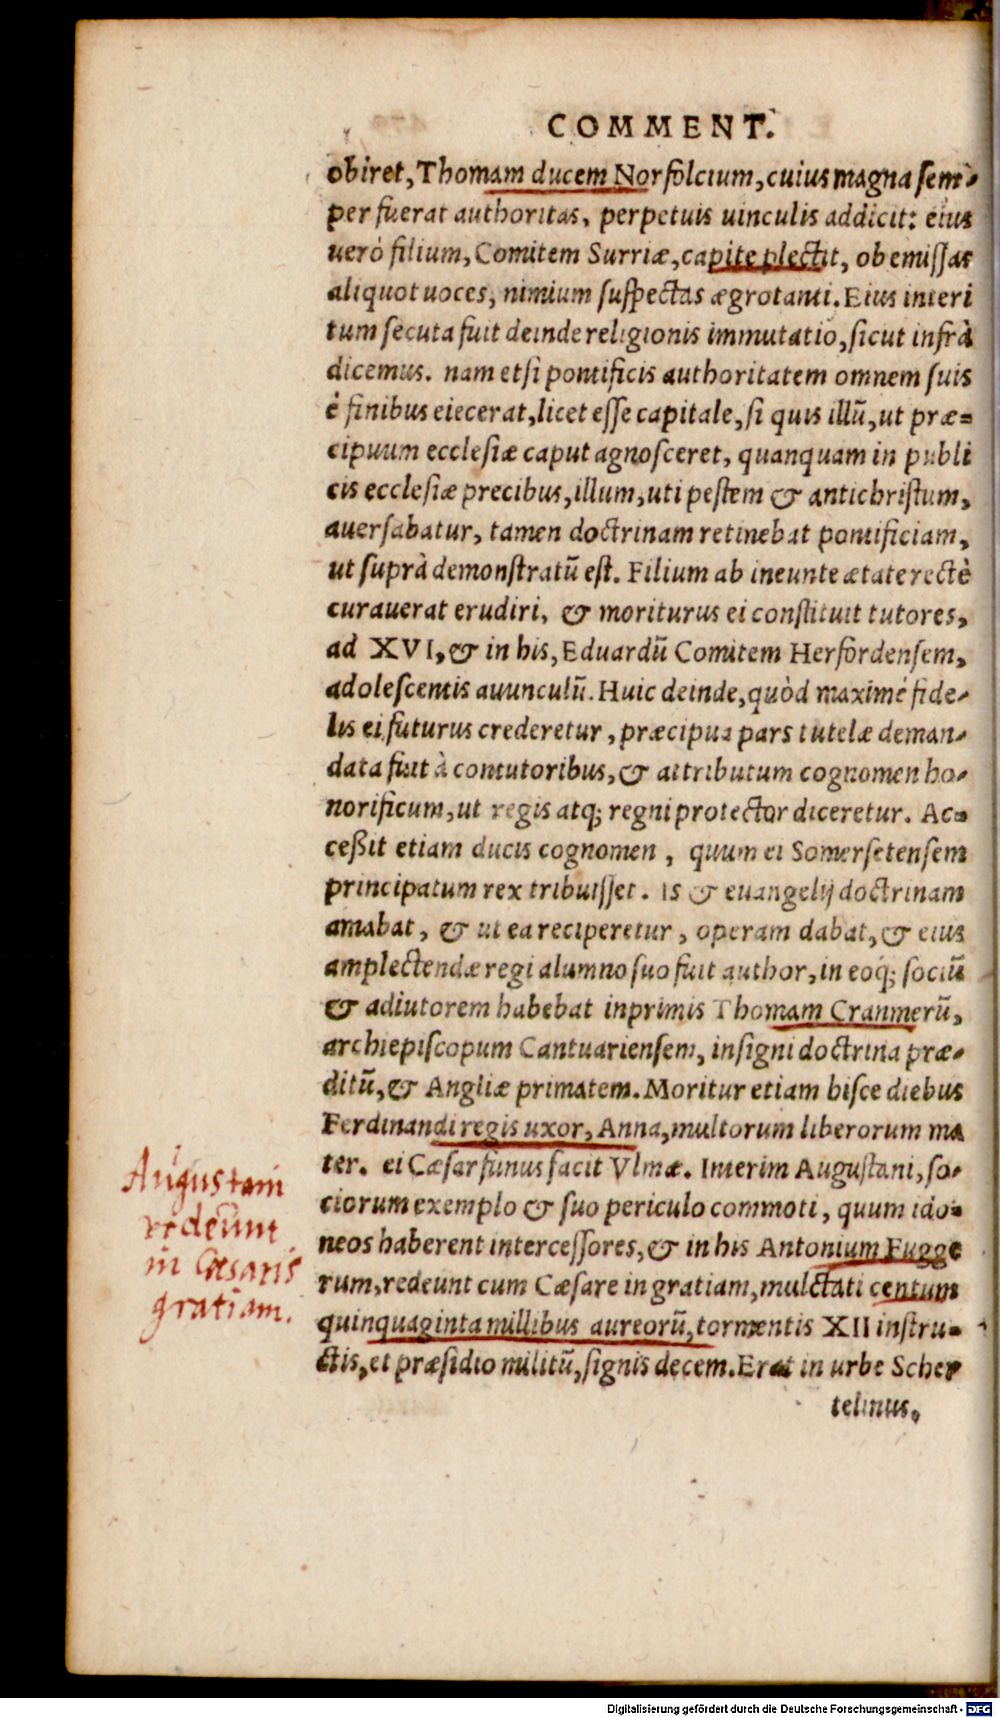 COMMENT.
obiret, Thomam ducem Norfolcium, cuius magna sem-
per fuerat authoritas, perpetuis uinculis addicit: eius
uerò filium, Comitem Surriæ, capite plectit, ob emissas
aliquot uoces, nimium suspectas ægrotanti. Eius interi
tum secuta fuit deinde religionis immutatio, sicut infrà
dicemus. nam etsi pontificis authoritatem omnem suis
è finibus eiecerat, licet esse capitale, si quis illū, ut præ-
cipuum ecclesiæ caput agnosceret, quanquam in publi
cis ecclesiæ precibus, illum, uti pestem & antichristum,
auersabatur, tamen doctrinam retinebat pontificiam,
ut suprà demonstratū est. Filium ab ineunte ætate rectè
curauerat erudiri, & moriturus ei constituit tutores,
ad XVI, & in his, Eduardū Comitem Herfordensem,
adolescentis auunculū. Huic deinde, quòd maximè fide-
lis ei futurus crederetur, præcipua pars tutelæ deman-
data fuit à contutoribus, & attributum cognomen ho-
norificum, ut regis atq; regni protector diceretur. Ac-
ceßit etiam ducis cognomen, quum ei Somersetensem
principatum rex tribuisset. Is & euangelij doctrinam
amabat, & ut ea reciperetur, operam dabat, & eius
amplectendæ regi alumno suo fuit author, in eoq́; sociū
& adiutorem habebat inprimis Thomam Cranmerū,
archiepiscopum Cantuariensem, insigni doctrina præ-
ditū, & Angliæ primatem. Moritur etiam hisce diebus
Ferdinandi regis uxor, Anna, multorum liberorum ma
ter. ei Cæsar funus facit Vlmæ. Interim Augustani, so-
ciorum exemplo & suo periculo commoti, quum ido-
neos haberent intercessores, & in his Antonium Fugge
rum, redeunt cum Cæsare in gratiam, mulctati centum
quinquaginta millibus aureorū, tormentis XII instru-
ctis, et præsidio militū, signis decem. Erat in urbe Scher
telinus,
Augustani
redeunt
in Cæsaris
gratiam.
Digitalisierung gefördert durch die Deutsche Forschungsgemeinschaft - DFG